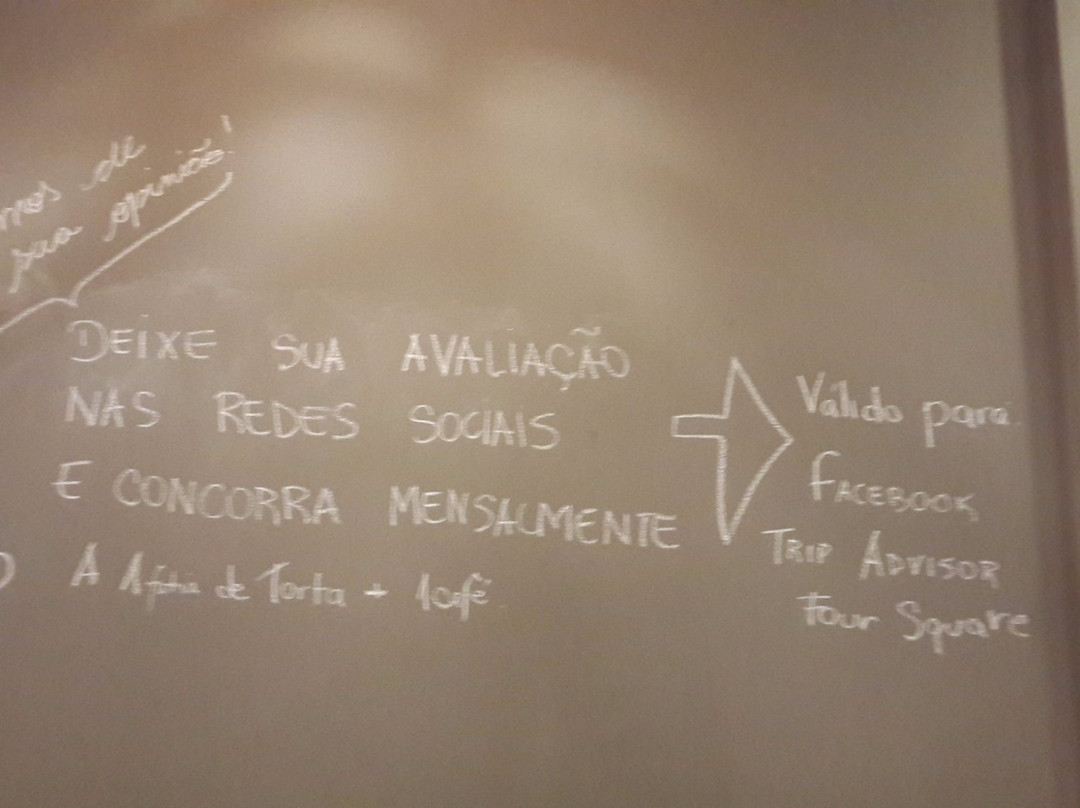 de
sua opinião!
DEIXE SUA AVALIAÇÃO
NAS REDES SOCIAIS
E CONCORRA MENSALMENTE
A 1 fatia de Torta + 1 café
Válido para:
FACEBOOK
TRIP ADVISOR
Four Square